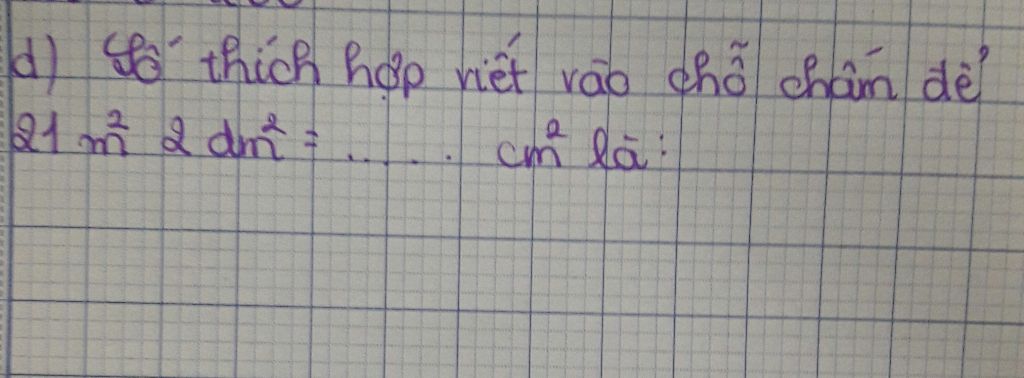 d) Số thích hợp viết vào chỗ chấm để
21 m² 2 dm² = ..... cm² là: